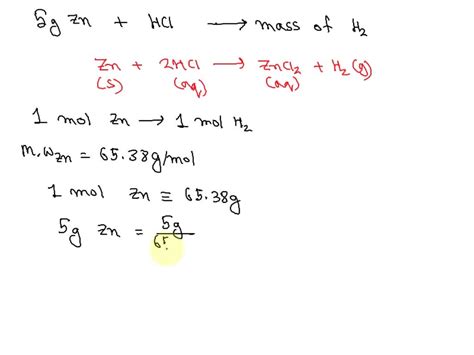 5g Zn + HCl ⟶ mass of H₂
Zn + 2HCl ⟶ ZnCl₂ + H₂(g)
(s) (aq) (aq)
1 mol Zn ⟶ 1 mol H₂
m.w Zn = 65.38g/mol
1 mol Zn ≡ 65.38g
5g Zn = 5g/65